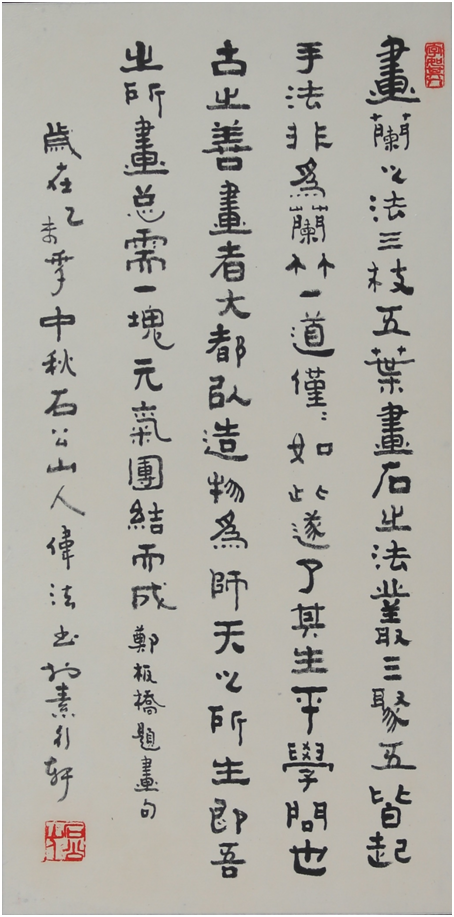 畫蘭之法三枝五葉畫石之法叢三聚五皆起
手法非為蘭竹一道僅〻如此遂了其生平學問也
古之善畫者大都以造物為師天之所生即吾
之所畫总需一塊元氣團結而成 鄭板橋題畫句
歲在乙未年中秋石公山人偉法书於素行軒